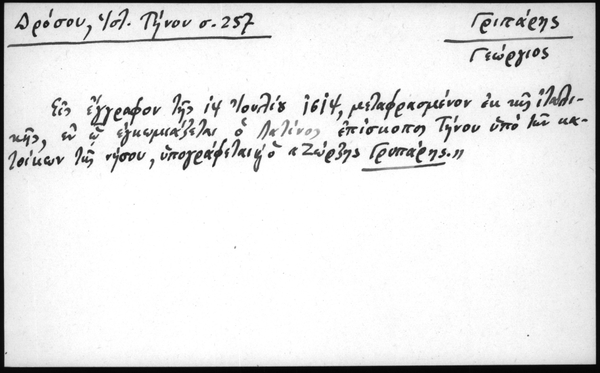 Δρόσου, Ἱστ. Τήνου σ. 257
Γριπάρης
Γεώργιος
Εἰς ἔγγραφον τῆς 14 Ἰουλίου 1614, μεταφρασμένον ἐκ τῆς ἰταλι-
κῆς, ἐν ᾧ ἐγκωμιάζεται ὁ Λατῖνος ἐπίσκοπος Τήνου ὑπὸ τῶν κα-
τοίκων τῆς νήσου, ὑπογράφεται ὁ «Ζώρζης Γρυπάρης.»